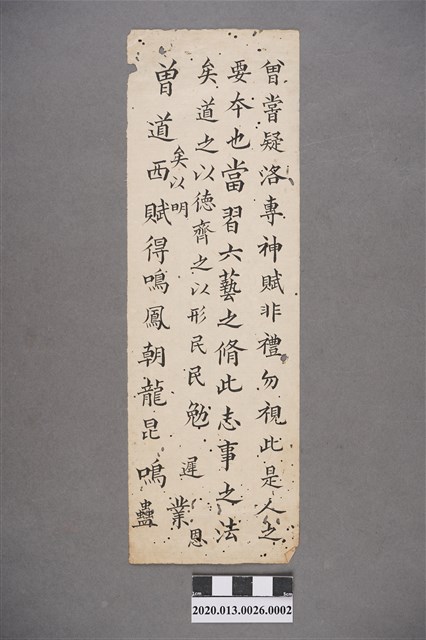 曾嘗疑洛專神賦非禮勿視此是人之
要夲也當習六藝之脩此志事之法
矣道之以徳齊之以形民民勉 遲 恩
矣以明 業
曽道西賦得鳴鳳朝龍昆 鳴 蠱
1cm 5cm
2020.013.0026.0002